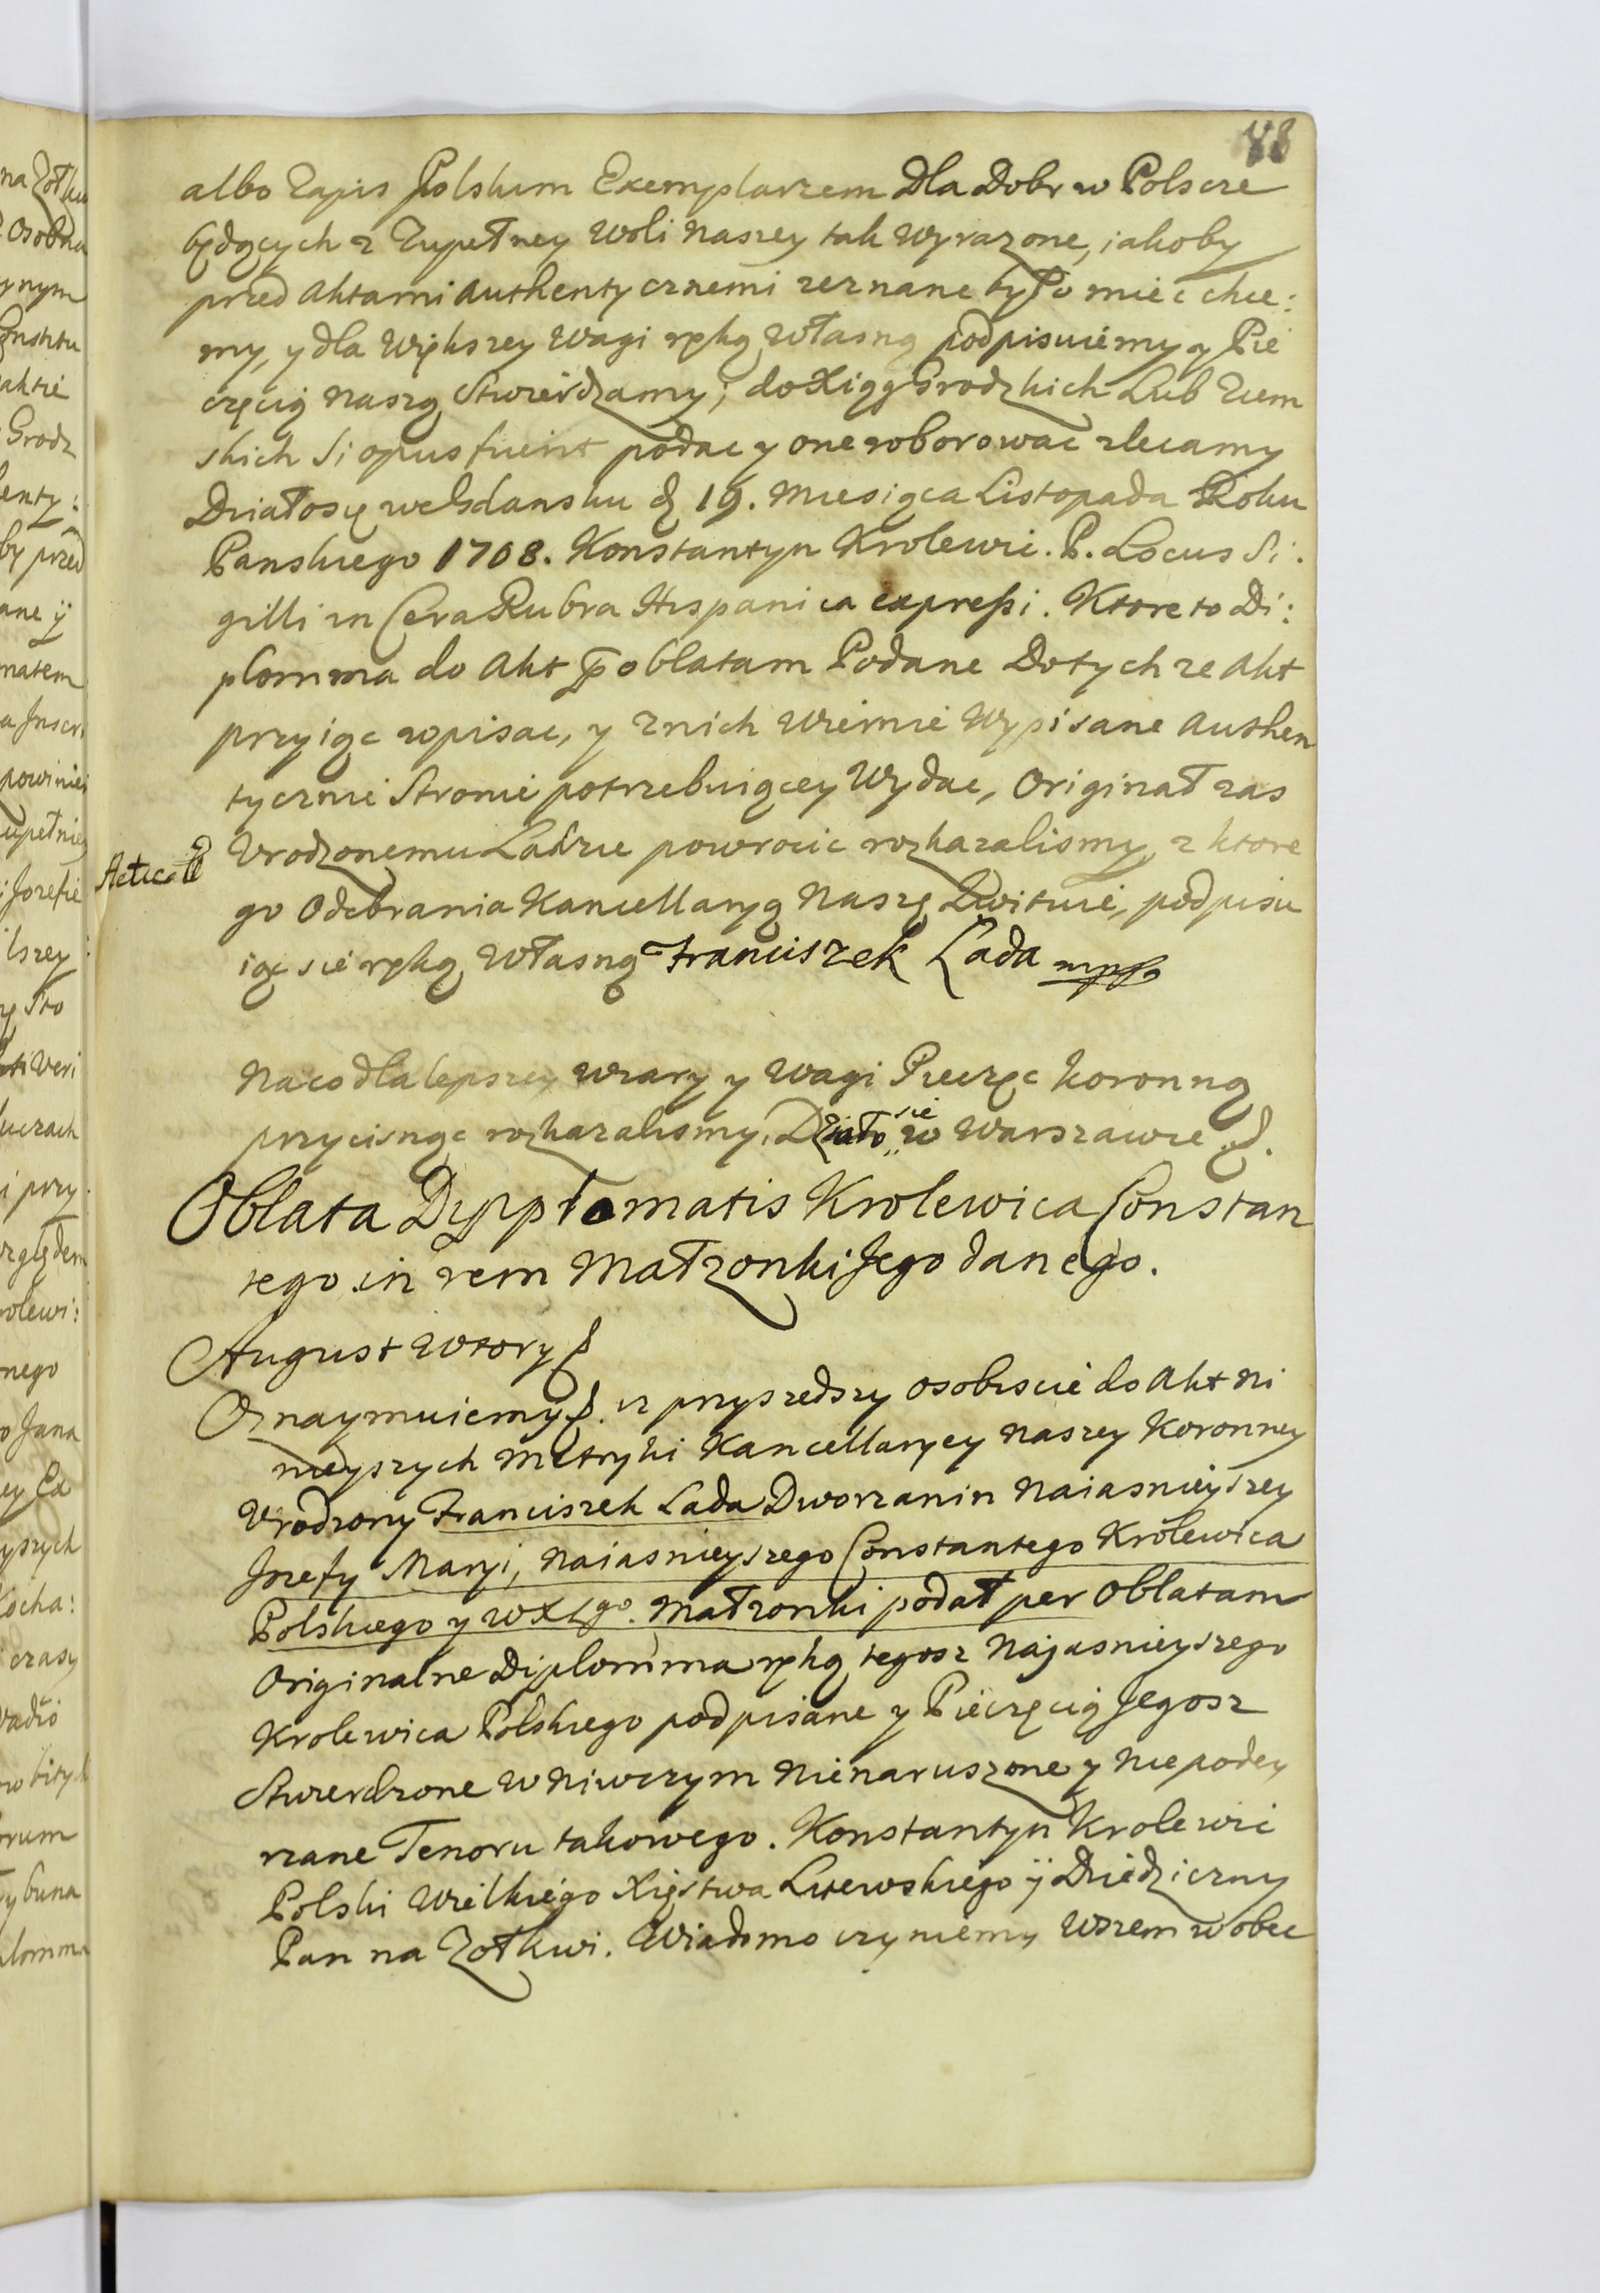 88
albo Zapis Polskim Exemplarzem Dla Dobr w Polscze
będących z Zupełney woli naszey tak wyrazone, iakoby
przed Aktami Authentycznemi zeznane było miec chce:
my, y dla większey wagi ręką własną podpisuiemy y Pie
częcią naszą Stwierdzamy; do Xiąg Grodzkich Lub Ziem
skich Si opus fuerit podac y one roborowac zlecamy
Działosię we Gdansku d 19. Miesiąca Listopada Roku
Panskiego 1708. Konstantyn Krolewic. P. Locus Si:
gilli in Cera Rubra Hispanica expressi. Ktore to Di:
plomma do Akt p oblatam Podane Do tychze Akt
przyiąc wpisac, y z nich wiernie Wypisane Authen
tycznie Stronie potrzebuiącey Wydac, Originał zas
Urodzonemu Ladzie powrocic rozkazalismy, z ktore
go Odebrania Kancellaryą Naszę kwituie, podpisu
iąc sie ręką własną Franciszek Lada mpp
Na co dla lepszey wiary y wagi Pieczęc koronną
przycisnąc rozkazalismy. Działo sie w Warszawie
Oblata Dypplomatis Krolewica Constan
tego in rem Małzonki Jego danego.
August Wtory
Oznaymuiemy iz przyszedszy osobiscie do Akt ni
nieyszych Metryki Kancellaryey naszey Koronney
Urodzony Franciszek Lada Dworzanin Naiasnieyszey
Jozefy Maryi, Naiasnieyszego Constantego Krolewica
Polskiego y WXLgo. Małzonki podał per Oblatam
Originalne Diplomma ręką tegosz Najasnieyszego
Krolewica Polskiego podpisane y Pieczęcią Jegosz
Stwierdzone w niwczym nienaruszone y niepodey
rzane Tenoru takowego. Konstantyn Krolewic
Polski Wielkiego Xięstwa Litewskiego ÿ Dziedziczny
Pan na Zołkwi. Wiadomo czyniemy Wszem wobec